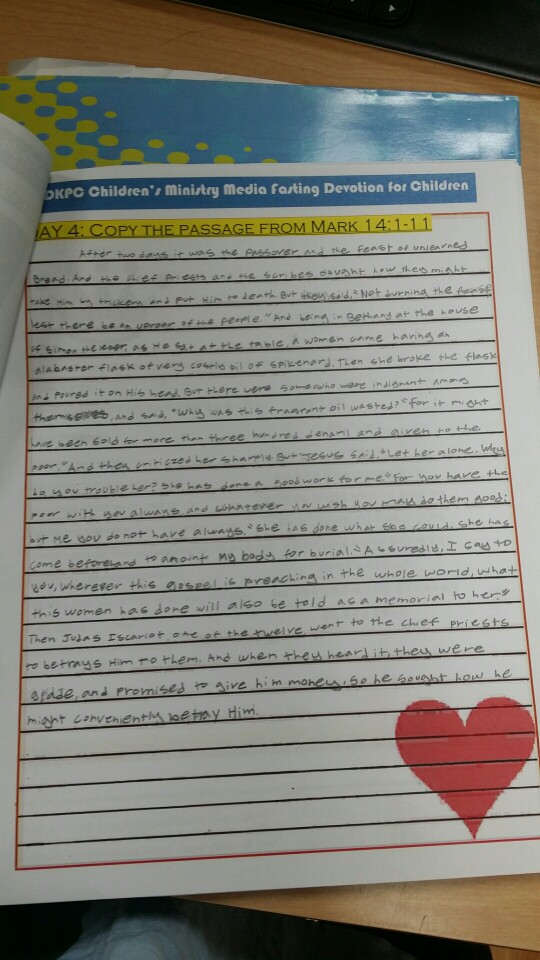 DKPC Children's Ministry Media Fasting Devotion for Children
AY 4: Copy the passage from Mark 14:1-11
After two days it was the Passover and the Feast of unleavned
Bread. And the chief priests and the scribes sought how they might
take Him by trickery and put Him to death. But they said, "Not durning the feast,
lest there be an uproar of the people." And being in Bethany at the house
of Simon the leper, as He sat at the table, a women came having an
alabaster flask of very costly oil of spikenard. Then she broke the flask
and poured it on His head. But there were some who were indignant among
themselves, and said, "Why was this fragrant oil wasted?" "For it might
have been sold for more than three hundred denarii and given to the
poor." And they criticzed her sharply. But Jesus said, "Let her alone. Why
do you trouble her? She has done a good work for me." For you have the
poor with you always, and whatever you wish you may do them good;
but Me you do not have always. "She has done what she could. She has
come beforehand to anoint My body for burial." Assuredly, I say to
you, wherever this gospel is preaching in the whole world, what
this women has done will also be told as a memorial to her."
Then Judas Iscariot, one of the twelve, went to the chief priests
to betrays Him to them. And when they heard it, they were
and promised to give him money. So he sought how he
might conveniently betray Him.